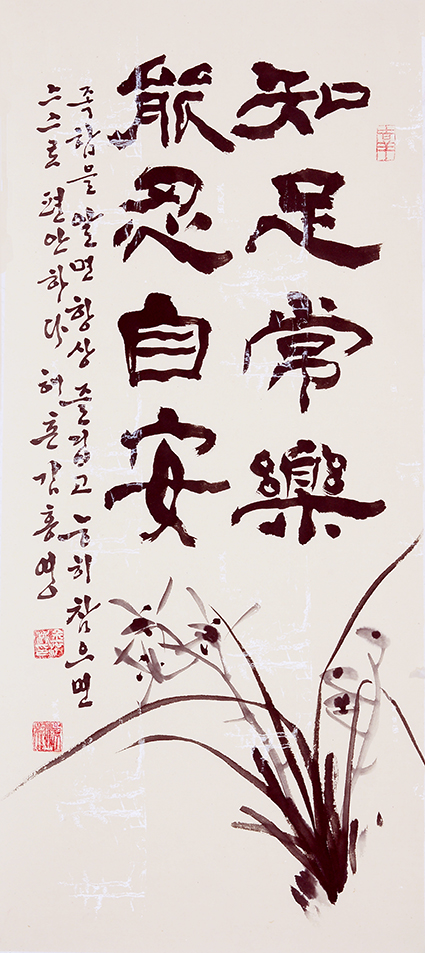 知足常樂
能忍自安
족함을 알면 항상 즐겁고 능히 참으면
스스로 편안하다 허촌 김흥영